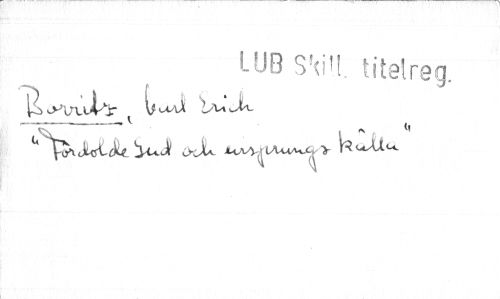 LUB Skill. titelreg.
Borritz, Curl Erich
"Fördolde Gud och ursprungs källa"